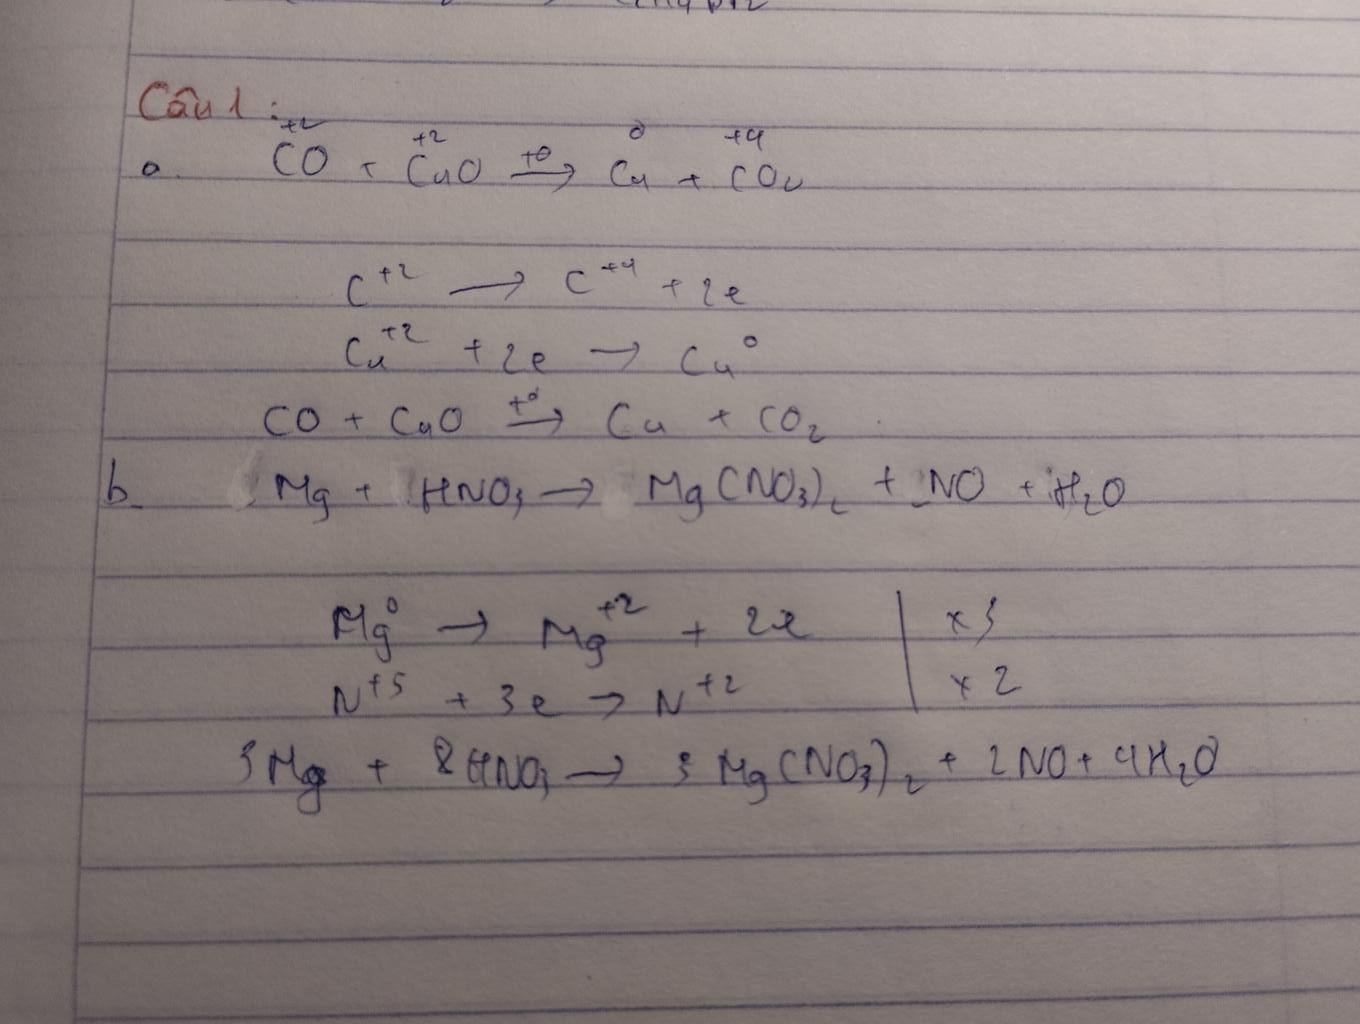 Câu 1:
+2 +2 0 +4
a. CO + CuO →(t°) Cu + CO₂
C⁺² → C⁺⁴ + 2e
Cu⁺² + 2e → Cu⁰
CO + CuO →(t°) Cu + CO₂
b. Mg + HNO₃ → Mg(NO₃)₂ + NO + H₂O
Mg⁰ → Mg⁺² + 2e | x3
N⁺⁵ + 3e → N⁺² | x2
3Mg + 8HNO₃ → 3Mg(NO₃)₂ + 2NO + 4H₂O